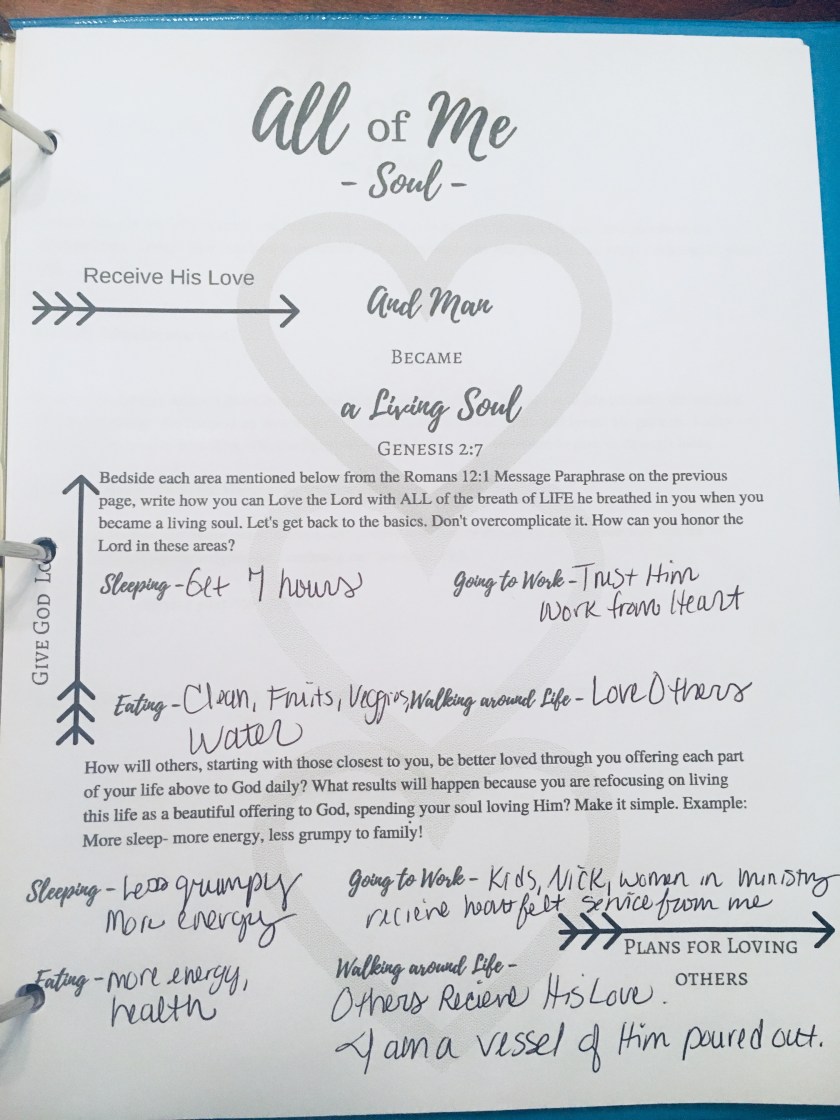 All of Me
- Soul -
Receive His Love
And Man
Became
a Living Soul
Genesis 2:7
Bedside each area mentioned below from the Romans 12:1 Message Paraphrase on the previous
page, write how you can Love the Lord with ALL of the breath of LIFE he breathed in you when you
became a living soul. Let's get back to the basics. Don't overcomplicate it. How can you honor the
Lord in these areas?
Give God
Sleeping - Get 7 hours
Going to Work - Trust Him
Work from Heart
Eating - Clean, Fruits, Veggies,
Water
Walking around Life - Love Others
How will others, starting with those closest to you, be better loved through you offering each part
of your life above to God daily? What results will happen because you are refocusing on living
this life as a beautiful offering to God, spending your soul loving Him? Make it simple. Example:
More sleep- more energy, less grumpy to family!
Sleeping - Less grumpy
More energy
Going to Work - Kids, Nick, women in ministry
recieve heartfelt service from me
Plans for Loving
others
Eating - more energy,
health
Walking around Life -
Others Recieve His Love.
I am a vessel of Him poured out.